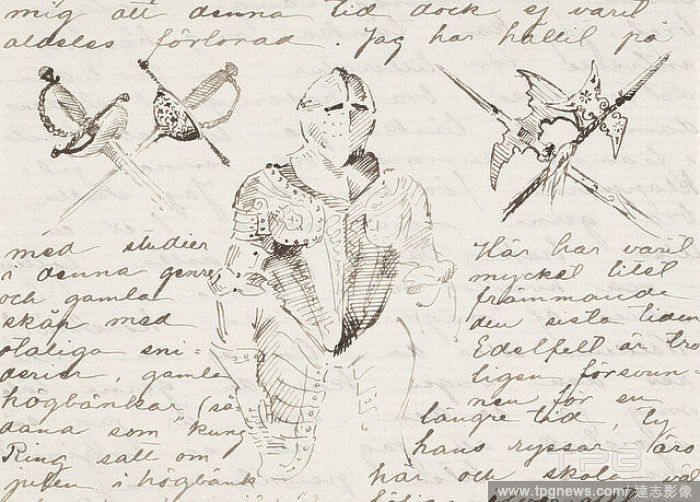 mig att denna tid dock ej varit
aldeles förlorad. Jag har hållit på
med studier
i denna genre
och gamla
skåp med
otaliga sni=
derier, gamla
högbänkar (så=
dana som "kung
Ring satt om
julen i högbänk
Här har varit
mycket litet
främmande
den sista tiden
Edelfelt är tro
ligen försvun=
nen för en
längre tid, ty
hans ryssar äro
här och skola
www.tpgnews.com / 達志影像